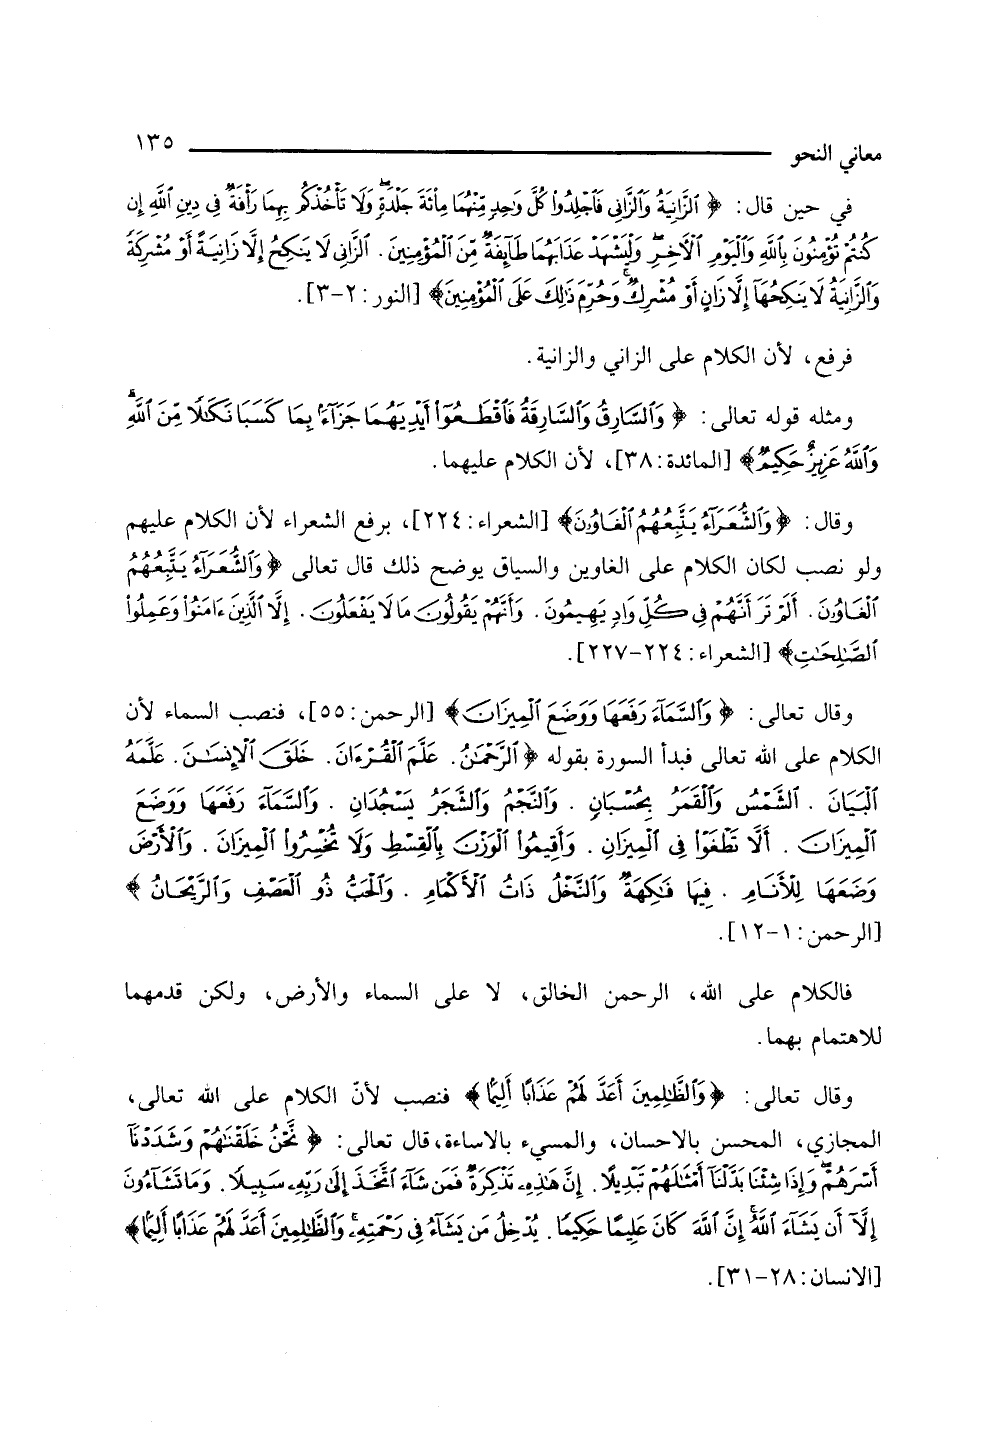 معاني النحو ١٣٥
في حين قال: ﴿ الزَّانِيَةُ وَالزَّانِي فَاجْلِدُوا كُلَّ وَاحِدٍ مِّنْهُمَا مِائَةَ جَلْدَةٍ وَلَا تَأْخُذْكُم بِهِمَا رَأْفَةٌ فِي دِينِ اللَّهِ إِن
كُنتُمْ تُؤْمِنُونَ بِاللَّهِ وَالْيَوْمِ الْآخِرِ وَلْيَشْهَدْ عَذَابَهُمَا طَائِفَةٌ مِّنَ الْمُؤْمِنِينَ . الزَّانِي لَا يَنكِحُ إِلَّا زَانِيَةً أَوْ مُشْرِكَةً
وَالزَّانِيَةُ لَا يَنكِحُهَا إِلَّا زَانٍ أَوْ مُشْرِكٌ وَحُرِّمَ ذَلِكَ عَلَى الْمُؤْمِنِينَ﴾ [النور:٢-٣].
فرفع، لأن الكلام على الزاني والزانية.
ومثله قوله تعالى: ﴿ وَالسَّارِقُ وَالسَّارِقَةُ فَاقْطَعُوا أَيْدِيَهُمَا جَزَاءً بِمَا كَسَبَا نَكَالًا مِّنَ اللَّهِ
وَاللَّهُ عَزِيزٌ حَكِيمٌ﴾ [المائدة:٣٨]، لأن الكلام عليهما.
وقال: ﴿ وَالشُّعَرَاءُ يَتَّبِعُهُمُ الْغَاوُونَ﴾ [الشعراء:٢٢٤]، برفع الشعراء لأن الكلام عليهم
ولو نصب لكان الكلام على الغاوين والسياق يوضح ذلك قال تعالى ﴿ وَالشُّعَرَاءُ يَتَّبِعُهُمُ
الْغَاوُونَ . أَلَمْ تَرَ أَنَّهُمْ فِي كُلِّ وَادٍ يَهِيمُونَ . وَأَنَّهُمْ يَقُولُونَ مَا لَا يَفْعَلُونَ . إِلَّا الَّذِينَ ءَامَنُوا وَعَمِلُوا
الصَّالِحَاتِ﴾ [الشعراء:٢٢٤-٢٢٧].
وقال تعالى: ﴿ وَالسَّمَاءَ رَفَعَهَا وَوَضَعَ الْمِيزَانَ﴾ [الرحمن:٥٥]، فنصب السماء لأن
الكلام على الله تعالى فبدأ السورة بقوله ﴿ الرَّحْمَنُ . عَلَّمَ الْقُرْءَانَ . خَلَقَ الْإِنسَانَ . عَلَّمَهُ
الْبَيَانَ . الشَّمْسُ وَالْقَمَرُ بِحُسْبَانٍ . وَالنَّجْمُ وَالشَّجَرُ يَسْجُدَانِ . وَالسَّمَاءَ رَفَعَهَا وَوَضَعَ
الْمِيزَانَ . أَلَّا تَطْغَوْا فِي الْمِيزَانِ . وَأَقِيمُوا الْوَزْنَ بِالْقِسْطِ وَلَا تُخْسِرُوا الْمِيزَانَ . وَالْأَرْضَ
وَضَعَهَا لِلْأَنَامِ . فِيهَا فَاكِهَةٌ وَالنَّخْلُ ذَاتُ الْأَكْمَامِ . وَالْحَبُّ ذُو الْعَصْفِ وَالرَّيْحَانُ ﴾
[الرحمن:١-١٢].
فالكلام على الله، الرحمن الخالق، لا على السماء والأرض، ولكن قدمهما
للاهتمام بهما.
وقال تعالى: ﴿وَالظَّالِمِينَ أَعَدَّ لَهُمْ عَذَابًا أَلِيمًا ﴾ فنصب لأنّ الكلام على الله تعالى،
المجازي، المحسن بالاحسان، والمسيء بالاساءة،قال تعالى: ﴿ نَّحْنُ خَلَقْنَاهُمْ وَشَدَدْنَا
أَسْرَهُمْ وَإِذَا شِئْنَا بَدَّلْنَا أَمْثَالَهُمْ تَبْدِيلًا . إِنَّ هَذِهِ تَذْكِرَةٌ فَمَن شَاءَ اتَّخَذَ إِلَى رَبِّهِ سَبِيلًا . وَمَا تَشَاءُونَ
إِلَّا أَن يَشَاءَ اللَّهُ إِنَّ اللَّهَ كَانَ عَلِيمًا حَكِيمًا . يُدْخِلُ مَن يَشَاءُ فِي رَحْمَتِهِ وَالظَّالِمِينَ أَعَدَّ لَهُمْ عَذَابًا أَلِيمًا ﴾
[الانسان:٢٨-٣١].